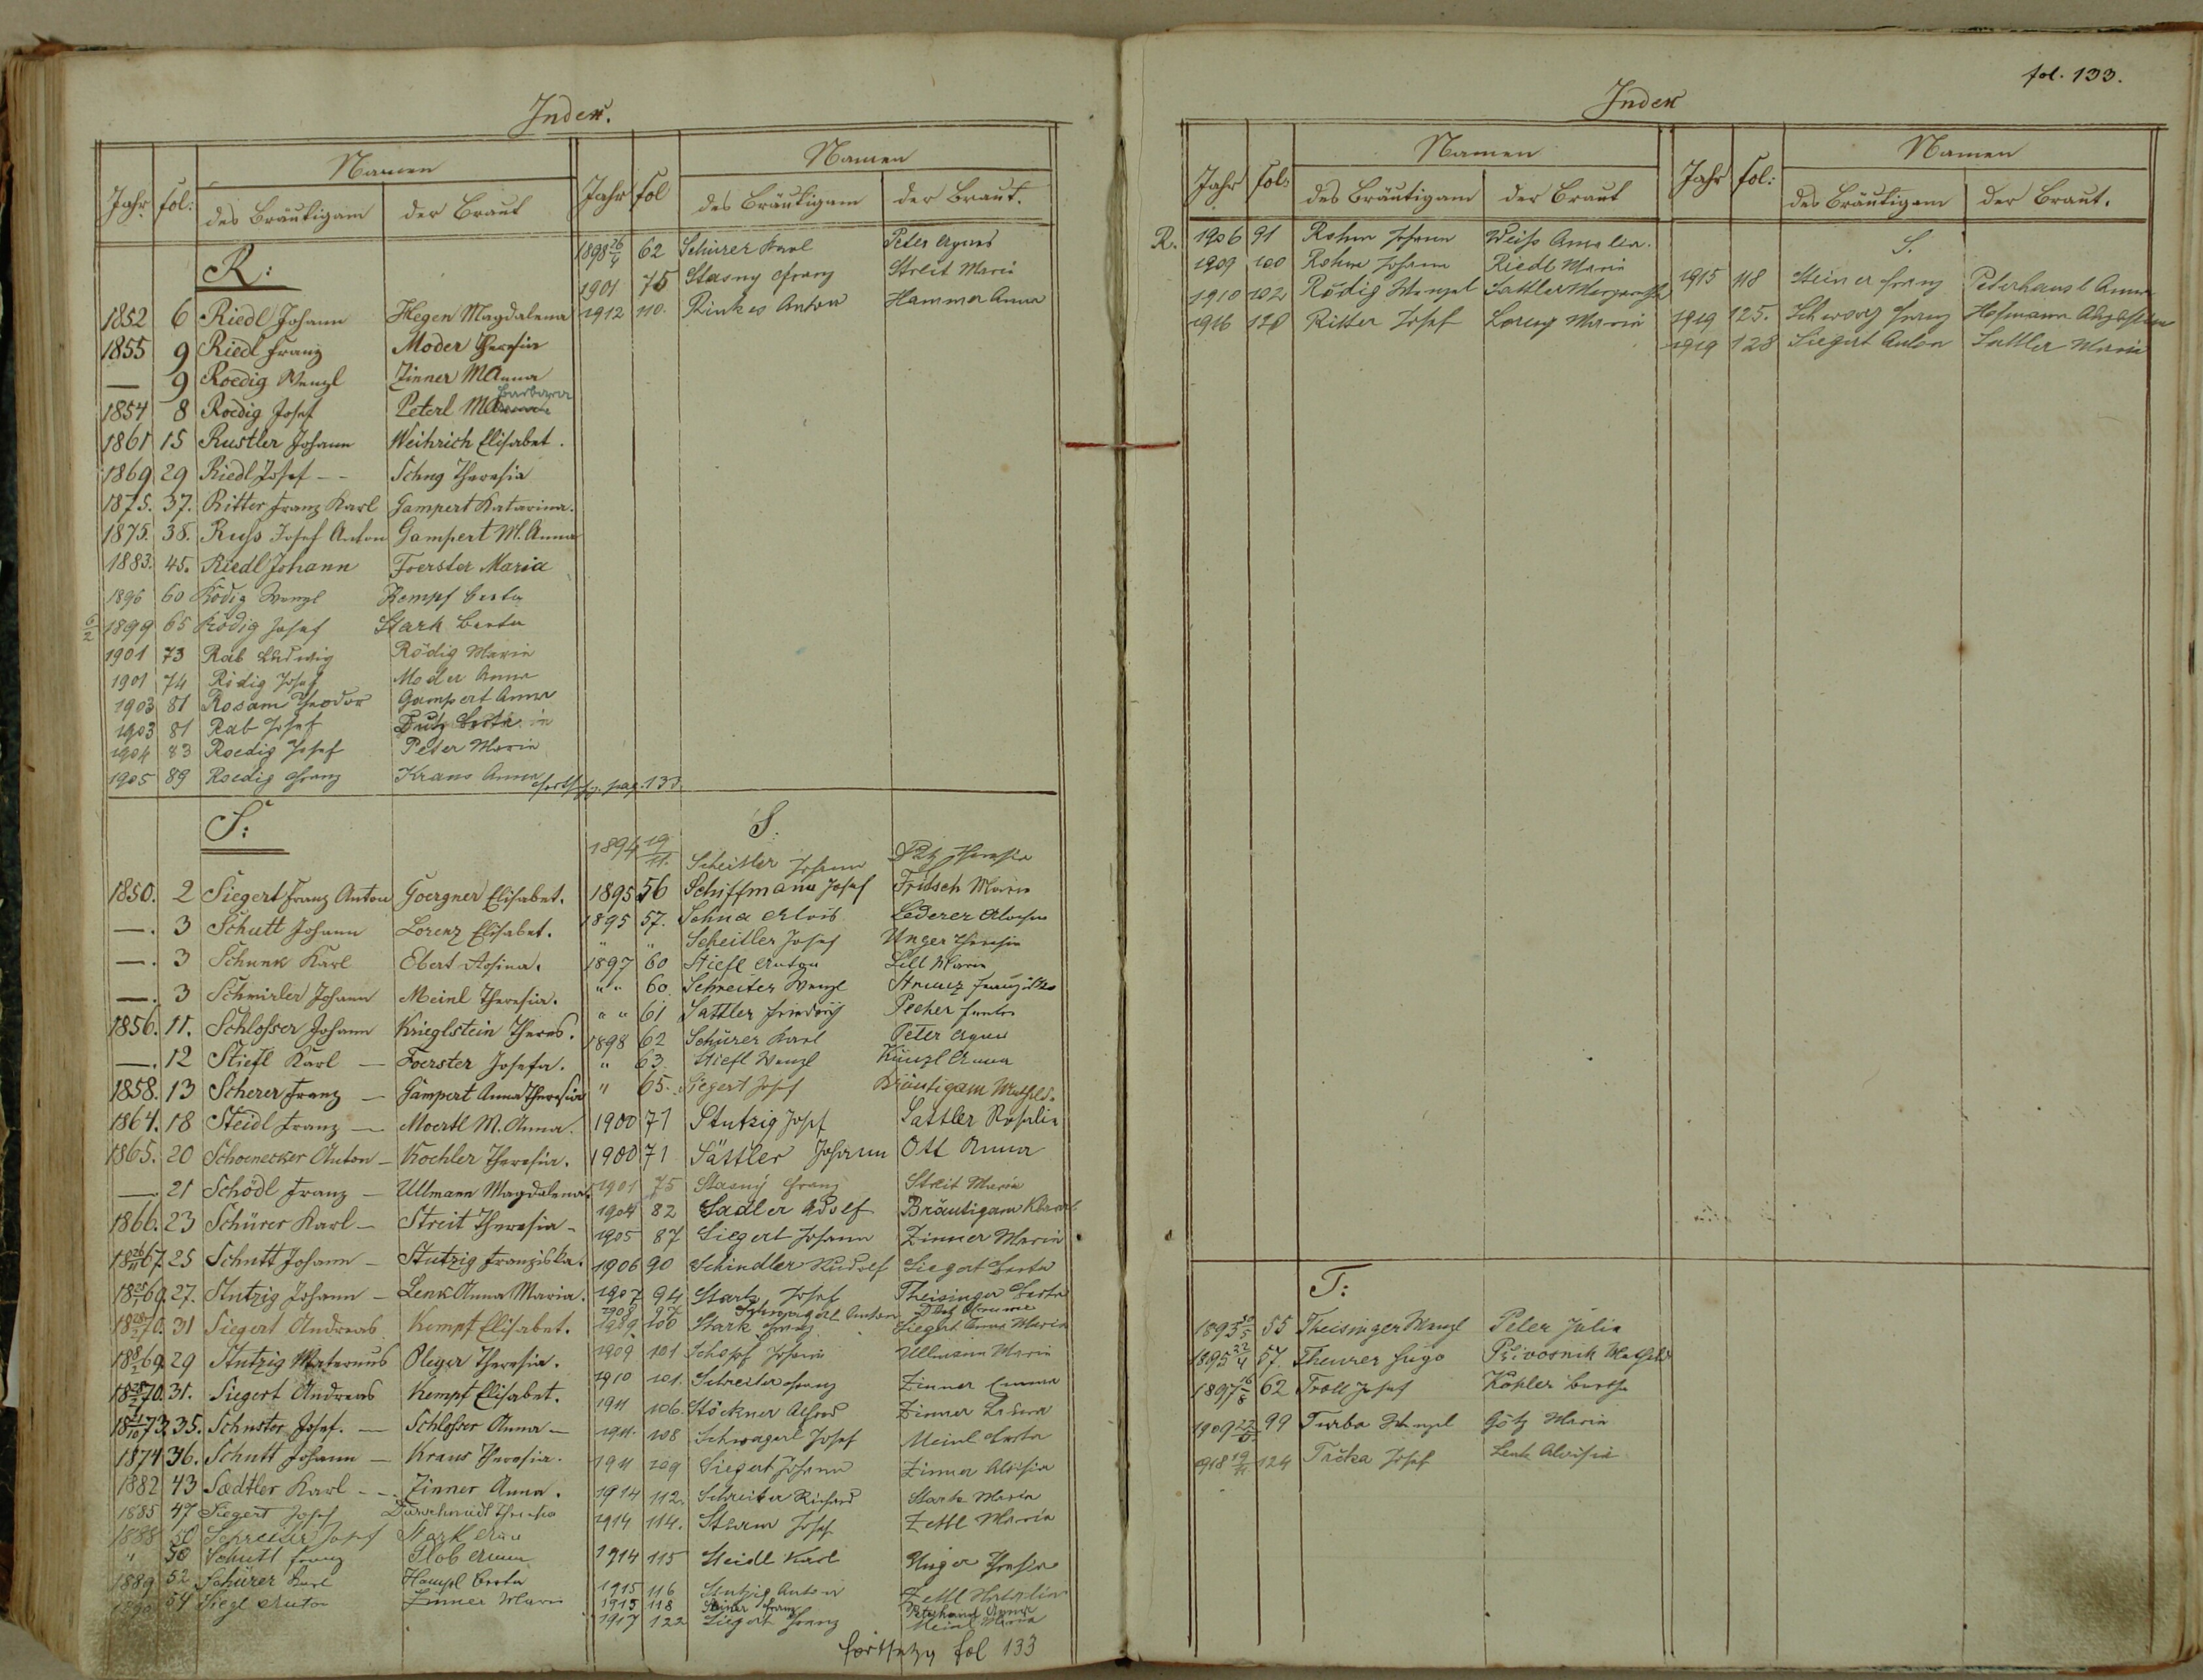 Index.
Jahr fol: Namen
des Bräutigam der Braut
R:
1852 6 Riedl Johann Hegen Magdalena
1855 9 Riedl Franz Moder Theresia
— 9 Roedig Wenzl Zinner M Anna
Barbara
1854 8 Roedig Josef Peterl
1861 15 Rustler Johann Weihrich Elisabet.
1869 29 Riedl Josef - - Schug Theresia
1875. 37. Ritter Franz Karl Gampert Katarina.
1875. 38. Russ Josef Anton Gampert M. Anna
1883. 45. Riedl Johann Foerster Maria
1896 60 Rödig Wenzl Kempf Berta
6/2 1899 65 Rödig Josef Stark Berta
1901 73 Rab Ludwig Rödig Marie
1901 74 Rödig Josef Moder Anna
1903 81 Rosam Theodor Gampert Anna
1903 81 Rab Josef Berta
1904 83 Roedig Josef Peter Marie
1905 89 Roedig Franz Kraus Anna
Forts. pag. 133.
S:
1850. 2 Siegert Franz Anton Goergner Elisabet.
—. 3 Schutt Johann Lorenz Elisabet.
—. 3 Schunk Karl Ebert Rosina.
—. 3 Schmirler Johann Meinl Theresia.
1856. 11. Schlosser Johann Krieglstein Theres.
—. 12 Stiefl Karl — Foerster Josefa.
1858. 13 Scherer Franz — Gampert Anna Theresia
1864. 18 Steidl Franz — Moertl M. Anna.
1865. 20 Schoenecker Anton — Kochler Theresia.
— 21 Schödl Franz — Ullmann Magdalena.
1866. 23 Schürer Karl — Streit Theresia -
1867. 25 Schutt Johann — Stutzig Franziska.
1869. 27. Stutzig Johann — Lenk Anna Maria.
1870. 31 Siegert Andreas Kempf Elisabet.
1869 29 Stutzig Maternus Pleyer Theresia.
1870. 31. Siegert Andreas Kempf Elisabet.
1873. 35. Schuster Josef. — Schlosser Anna —
1874 36. Schutt Johann — Kraus Theresia.
1882 43 Saedtler Karl - - Zinner Anna.
1885 47 Siegert Josef Theresia
1888 50 Schreiter Josef Stark Anna
" 50 Schutt Franz Anna
1889 52 Schürer Karl Hampl Berta
1890 54 Siegl Anton Zinner Marie
Jahr fol Namen
des Bräutigam der Braut.
1898 26/4 62 Schürer Karl Peter Agnes
1901 75 Stasny Franz Streit Marie
1912 110. Rinkes Anton Hammer Anna
S.
1894 19/11. Scheitler Johann Theresia
1895 56 Schiffmann Josef Fritsch Marie
1895 57. Schna Alois Lederer Aloisia
" " Scheitler Josef Unger Theresia
1897 60 Stiefl Anton Lill Marie
" " 60. Schreiter Wenzl Franziska
" " 61 Sattler Friedrich Pecher
1898 62 Schürer Karl Peter Agnes
" 63 Stiefl Wenzl Künzl Anna
" 65. Siegert Josef Bräutigam Mathild.
1900 71 Stutzig Josef Sattler Rosalia
1900 71 Sattler Johann Ott Anna
1901 75 Stasny Franz Streit Maria
1904 82 Sadler Adolf Bräutigam Klara
1905 87 Siegert Johann Zinner Marie
1906 90 Schindler Rudolf Siegert Berta
1907 94 Stark Josef Theisinger Berta
1908 97 Schwagerl Anton
1909 100 Stark Franz Siegert Anna Maria
1909 101 Schopf Johann Ullmann Marie
1910 101. Schreiter Franz Zinner Emma
1911 106. Stöckner Alfred Zinner Laura
1911. 108 Schwagerl Josef Meinl Berta
1911 109 Siegert Johann Zinner Aloisia
1914 112. Schreiter Richard Stark Maria
1914 114. Sturm Josef Zettl Marie
1914 115 Steidl Karl Unger Theresia
1915 116 Stutzig Anton Zettl Natalia
1915 118 Steiner Franz Peterhansl Anna
1917 122 Siegert Franz Meinl Maria
fortsetzg fol 133
fol. 133.
Index
Jahr fol: Namen
des Bräutigam der Braut
R. 1906 91 Rohm Johann Weiss Amalia.
1909 100 Rohm Johann Riedl Marie
1910 102 Rödig Wenzel Sattler Margaretha
1916 120 Ritter Josef Lorenz Marie
T:
1893 55 Theisinger Wenzl Peter Julie
1895 57. Theurer Hugo Přivosnik Mathild
1897 16/8 62 Troll Josef Köhler Bertha
1909 99 Turba Wenzl Götz Marie
1918 124 Tučka Josef Lenk Aloisia
Jahr fol: Namen
des Bräutigam der Braut.
S.
1915 118 Steiner Franz Peterhansl Anna
1919 125. Schwarz Franz Hofmann
1919 128 Siegert Anton Sattler Marie